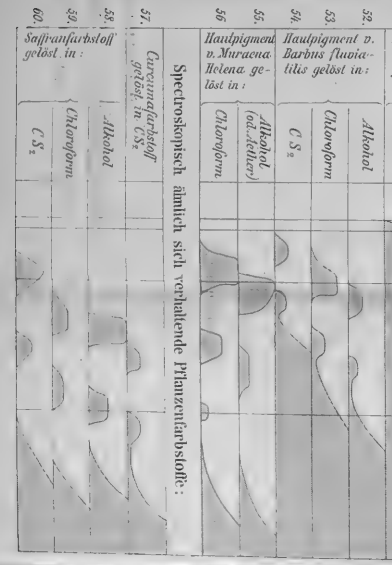 52.
53.
54.
55.
56
57.
58.
59.
60.
Hautpigment v.
Barbus fluvia-
tilis gelöst in:
Alkohol
Chloroform
C S₂
Hautpigment
v. Muraena
Helena ge-
löst in:
Alkohol
(od. Aether)
Chloroform
Spectroskopisch ähnlich sich verhaltende Pflanzenfarbstoffe:
Curcumafarbstoff
gelöst in CS₂
Saffranfarbstoff
gelöst in:
Alkohol
Chloroform
C S₂